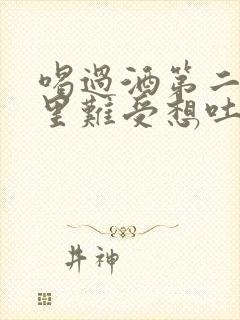 喝過酒第二
里難受想吐
井神